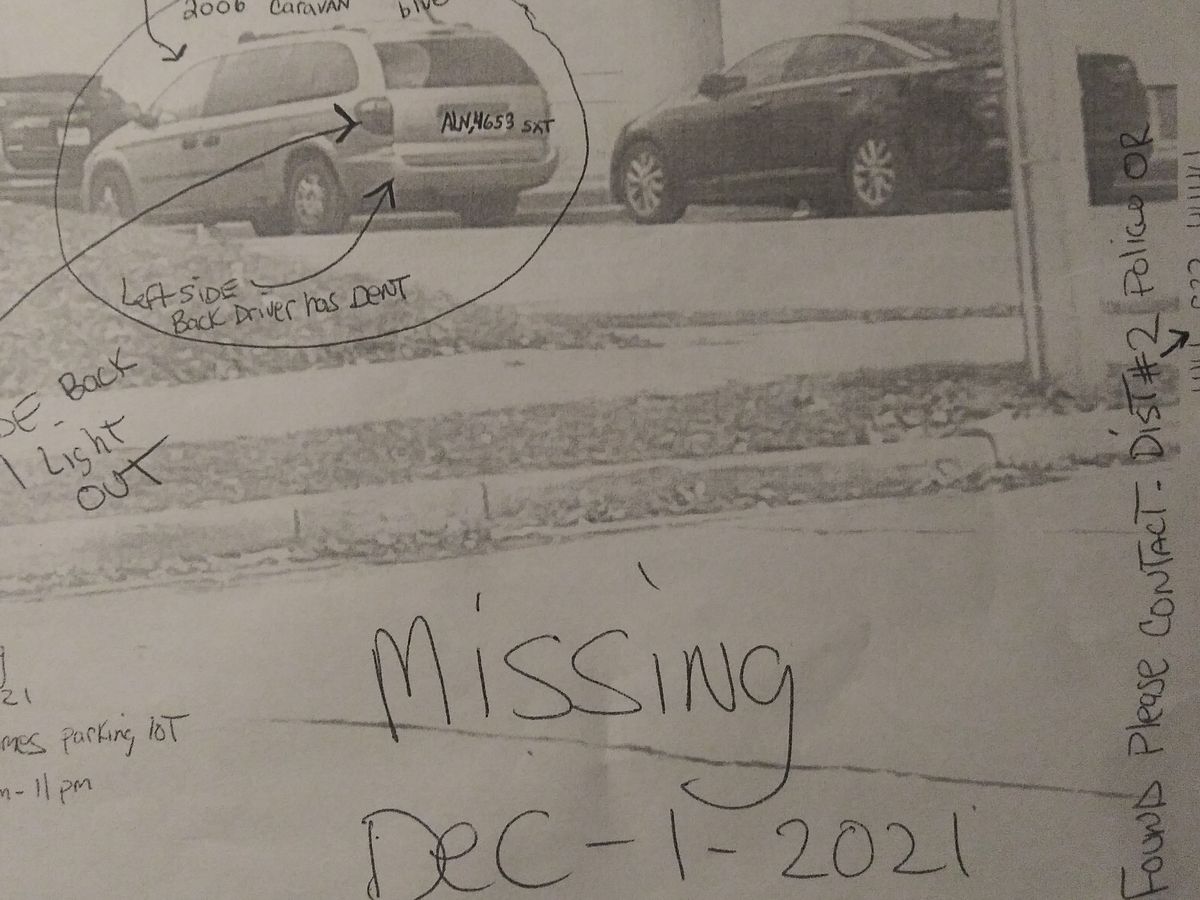 2006 CARAVAN blue
ALN,4653 SXT
Left SIDE
Back Driver has DENT
Back
Light
OUT
21
parking loT
11 pm
Missing
Dec-1-2021
FOUND Please CONTACT. DIST #2 Police OR